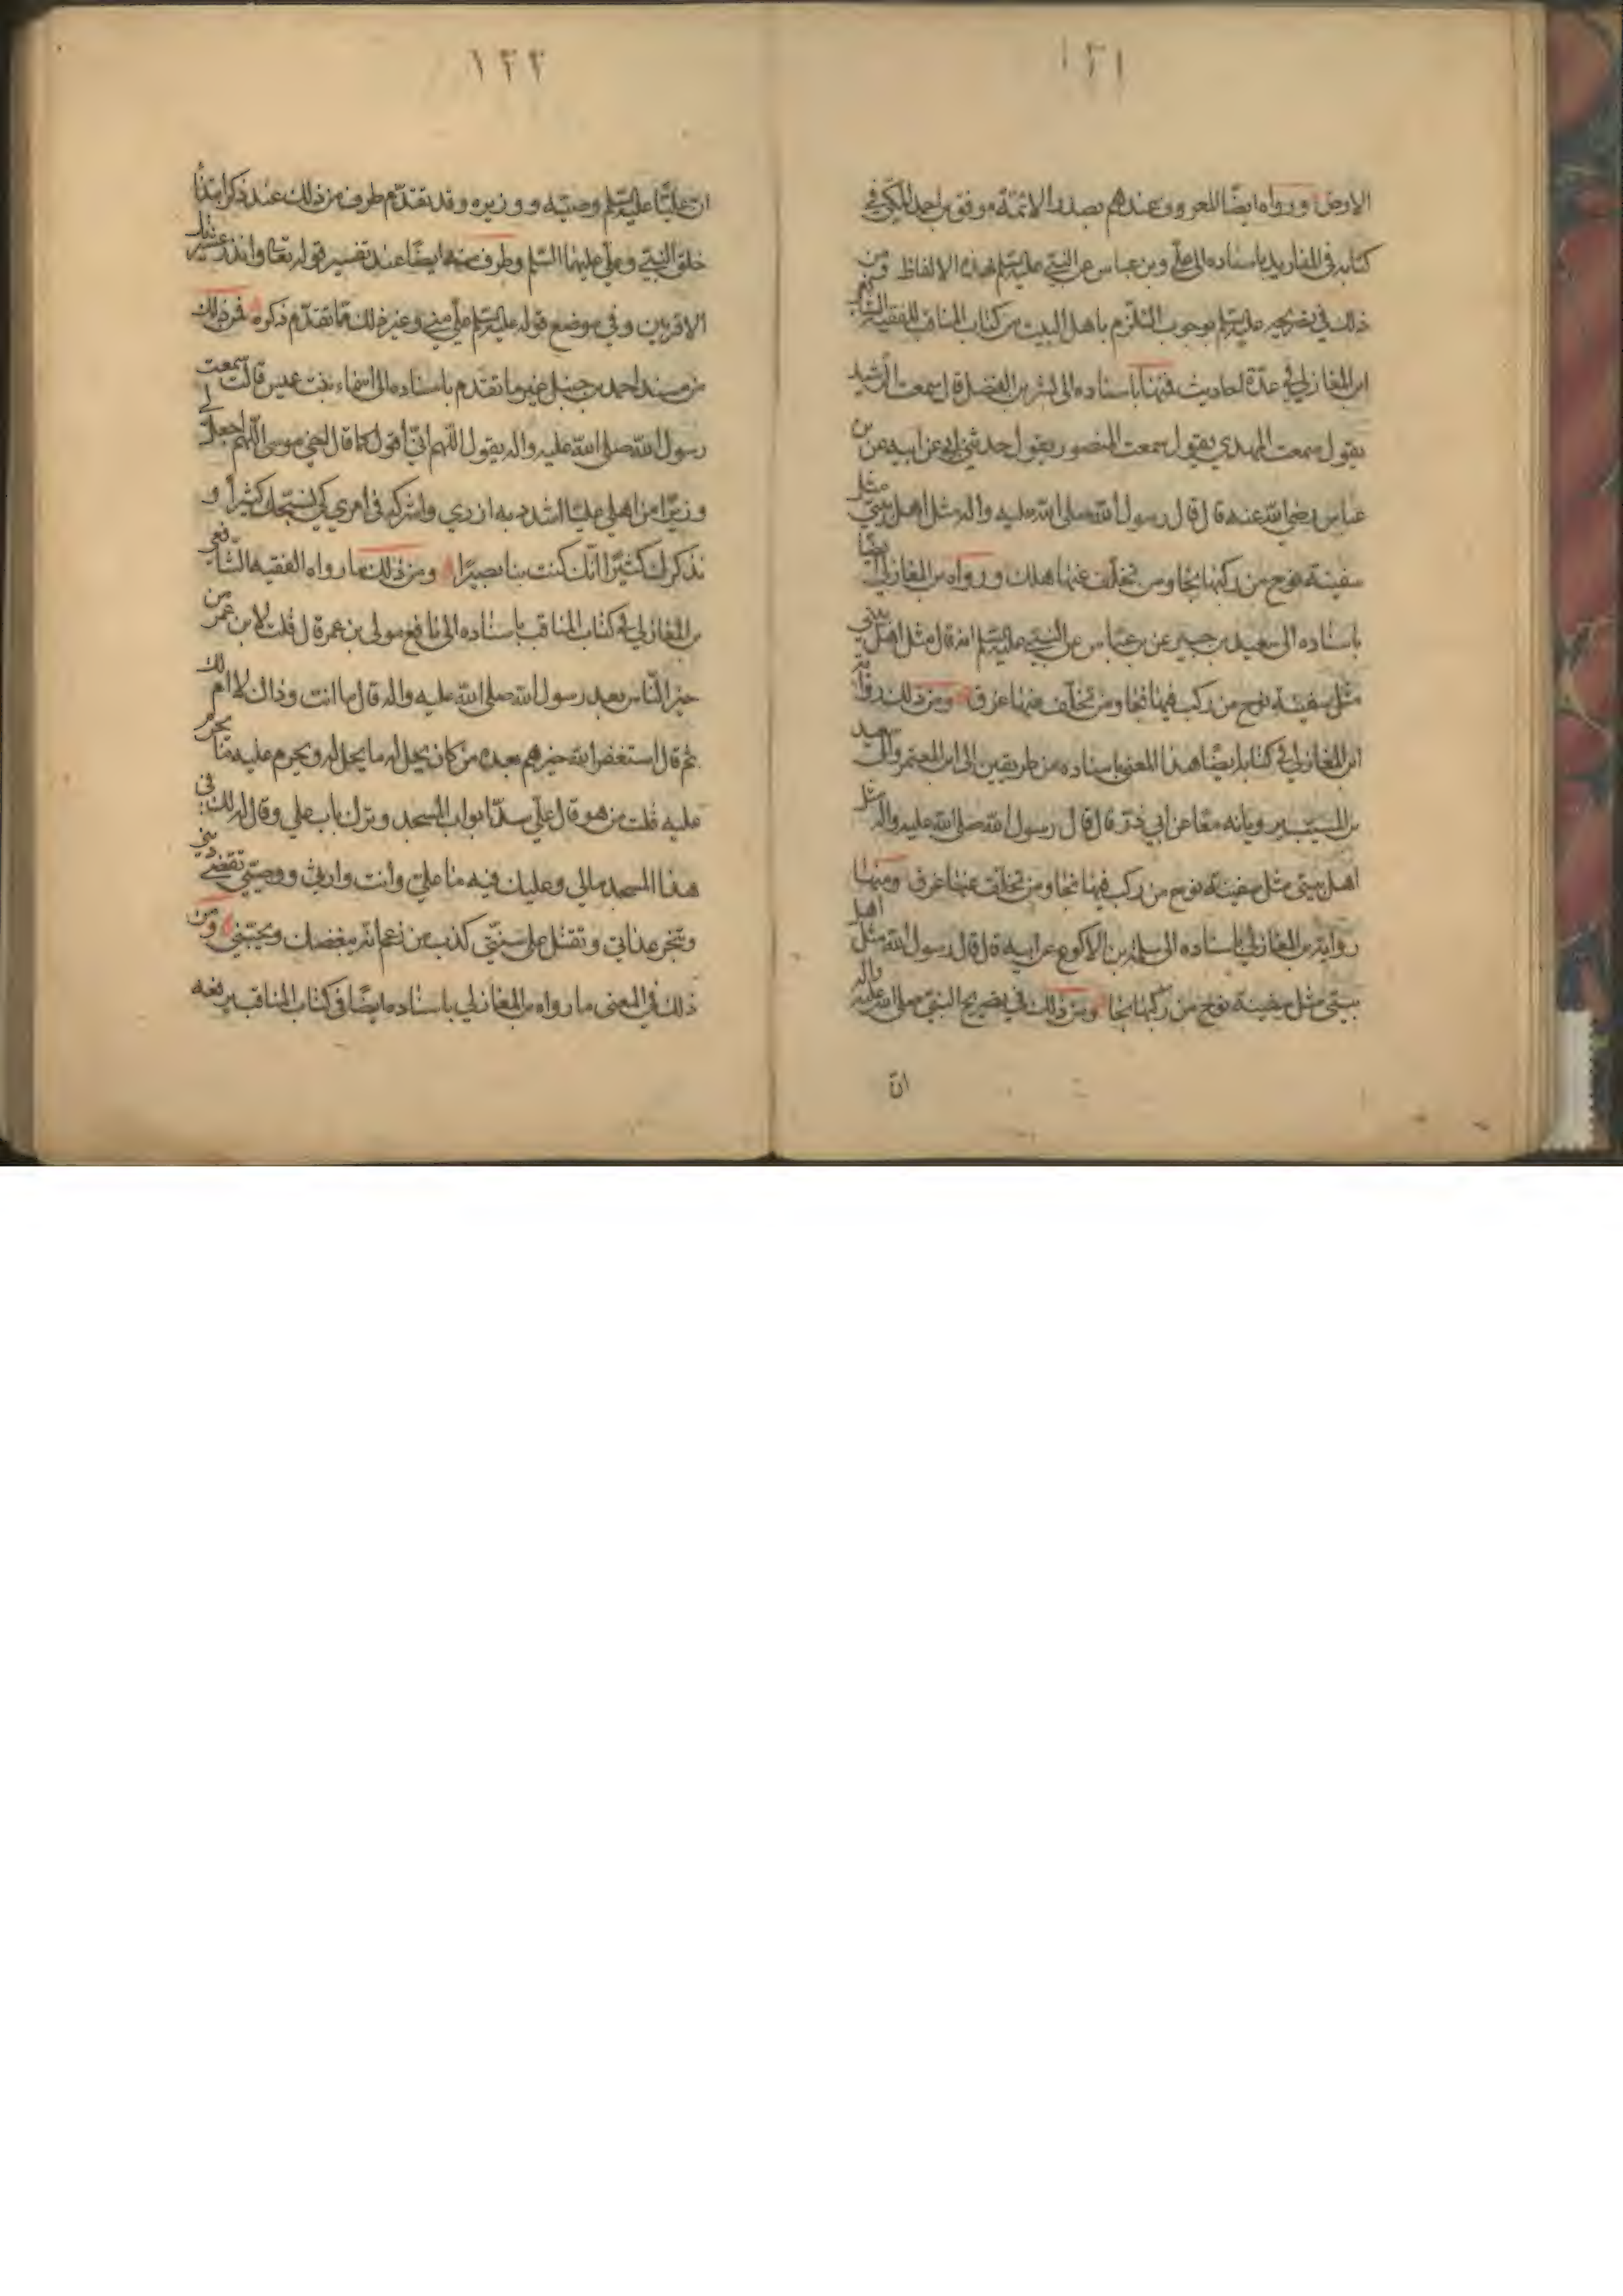 ١٢١
الارض ورواه ايضا المعروف عندهم بصدر الائمة موفق بن احمد المكي في
كتابه في باسناده الى علي وبن عباس عن النبي عليه السلم بهذه الالفاظ ومن
ذلك في تصريحه عليه السلم بوجوب التلزم باهل البيت من كتاب المناقب للفقيه الشافعي
ابن المغازلي في عدة احاديث فمنها باسناده الى بشر بن الفضل قال سمعت الرشيد
يقول سمعت المهدي يقول سمعت المنصور يقول حدثني ابي عن ابيه عن بن
عباس رضي الله عنه قال قال رسول الله صلى الله عليه واله مثل اهل بيتي مثل
سفينة نوح من ركبها نجا ومن تخلف عنها هلك ورواه بن المغازلي ايضا
باسناده الى سعيد بن جبير عن بن عباس عن النبي عليه السلم انه قال مثل اهل بيتي
مثل سفينة نوح من ركب فيها نجا ومن تخلف عنها غرق ومن ذلك رواية
ابن المغازلي في كتابه ايضا هذا المعنى باسناده من طريقين الى ابن المعتمر والى سعيد
بن المسيب برويانه معا عن ابي ذر قال قال رسول الله صلى الله عليه واله مثل
اهل بيتي مثل سفينة نوح من ركب فيها نجا ومن تخلف عنها غرق ومنها
رواية بن المغازلي باسناده الى سلمة بن الاكوع عن ابيه قال قال رسول الله مثل اهل
بيتي مثل سفينة نوح من ركبها نجا ومن ذلك في تصريح النبي صلى الله عليه واله
ان
١٢٢
ان عليا عليه السلم وصيه ووزيره وقد تقدم طرف من ذلك عند ذكر ابتداء
خلق النبي وعلي عليهما السلم وطرف منه ايضا عند تفسير قوله تعالى وانذر عشيرتك
الاقربين وفي موضع قوله عليه السلم علي مني وغير ذلك مما تقدم ذكره فمن ذلك
من مسند احمد بن حنبل غير ما تقدم باسناده الى اسماء بنت عميس قالت سمعت
رسول الله صلى الله عليه واله يقول اللهم اني اقول كما قال اخي موسى اللهم اجعل لي
وزيرا من اهلي عليا اشدد به ازري واشركه في امري كي نسبحك كثيرا و
نذكرك كثيرا انك كنت بنا بصيرا ومن ذلك ما رواه الفقيه الشافعي
بن المغازلي في كتاب المناقب باسناده الى نافع مولى بن عمر قال قلت لابن عمر من
خير الناس بعد رسول الله صلى الله عليه واله قال ما انت وذاك لا ام لك
ثم قال استغفر الله خيرهم بعده من كان يحل له ما يحل له ويحرم عليه ما يحرم
عليه قلت من هو قال علي سد ابواب المسجد وترك باب علي وقال له لك في
هذا المسجد مالي وعليك فيه ما علي وانت وارثي ووصيي تقضي ديني
وتنجز عداتي وتقتل على سنتي كذب من زعم انه يبغضك ويحبني ومن
ذلك في المعنى ما رواه بن المغازلي باسناده ايضا في كتاب المناقب يرفعه